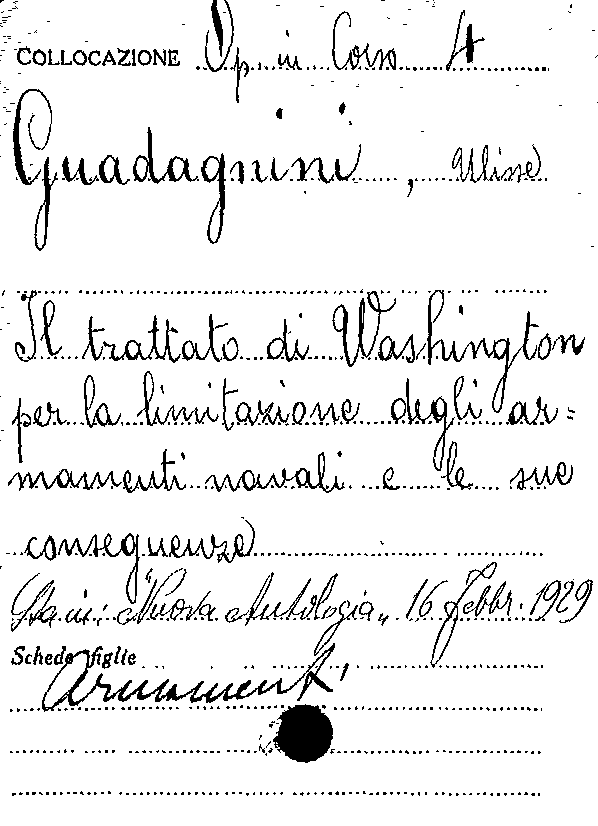 COLLOCAZIONE Op. in Corso 4
Guadagnini, Ulisse
Il trattato di Washington
per la limitazione degli ar=
mamenti navali e le sue
conseguenze
Sta in: "Nuova Antologia" 16 Febbr. 1929
Schede figlie
Armamenti